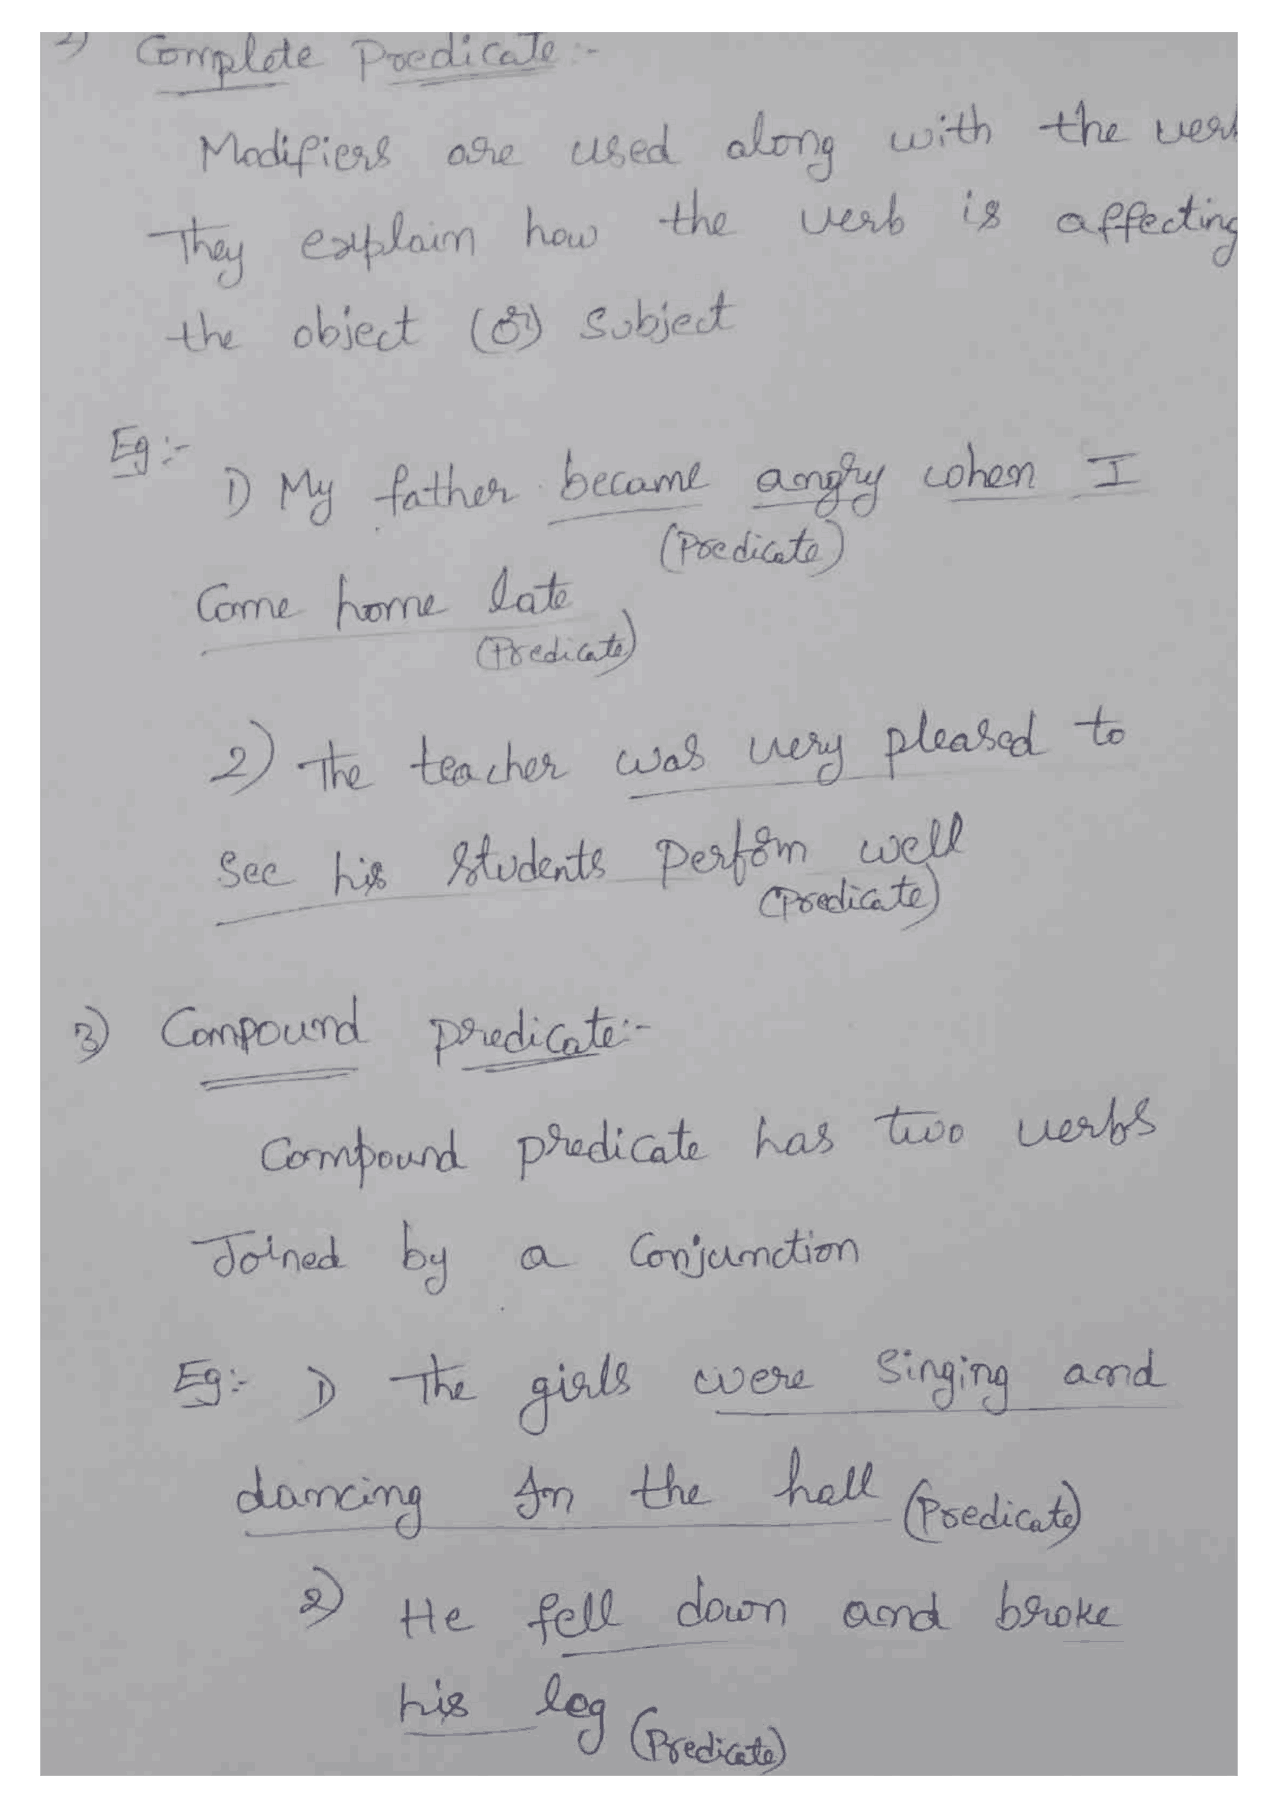 2) Complete Predicate:-
Modifiers are used along with the verb
They explain how the verb is affecting
the object (or) Subject
Eg:-
1) My father became angry when I
(Predicate)
Come home late
(Predicate)
2) The teacher was very pleased to
See his Students Perform well
(Predicate)
3) Compound predicate:-
Compound predicate has two verbs
Joined by a Conjunction
Eg:- 1) The girls were Singing and
dancing In the hall (Predicate)
2) He fell down and broke
his leg (Predicate)